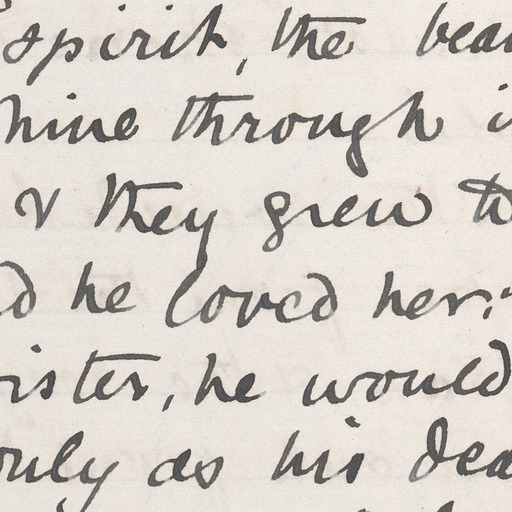 spirit, the beau
hine through i
& they grew to
d he loved her:
ister, he would
only as his dea